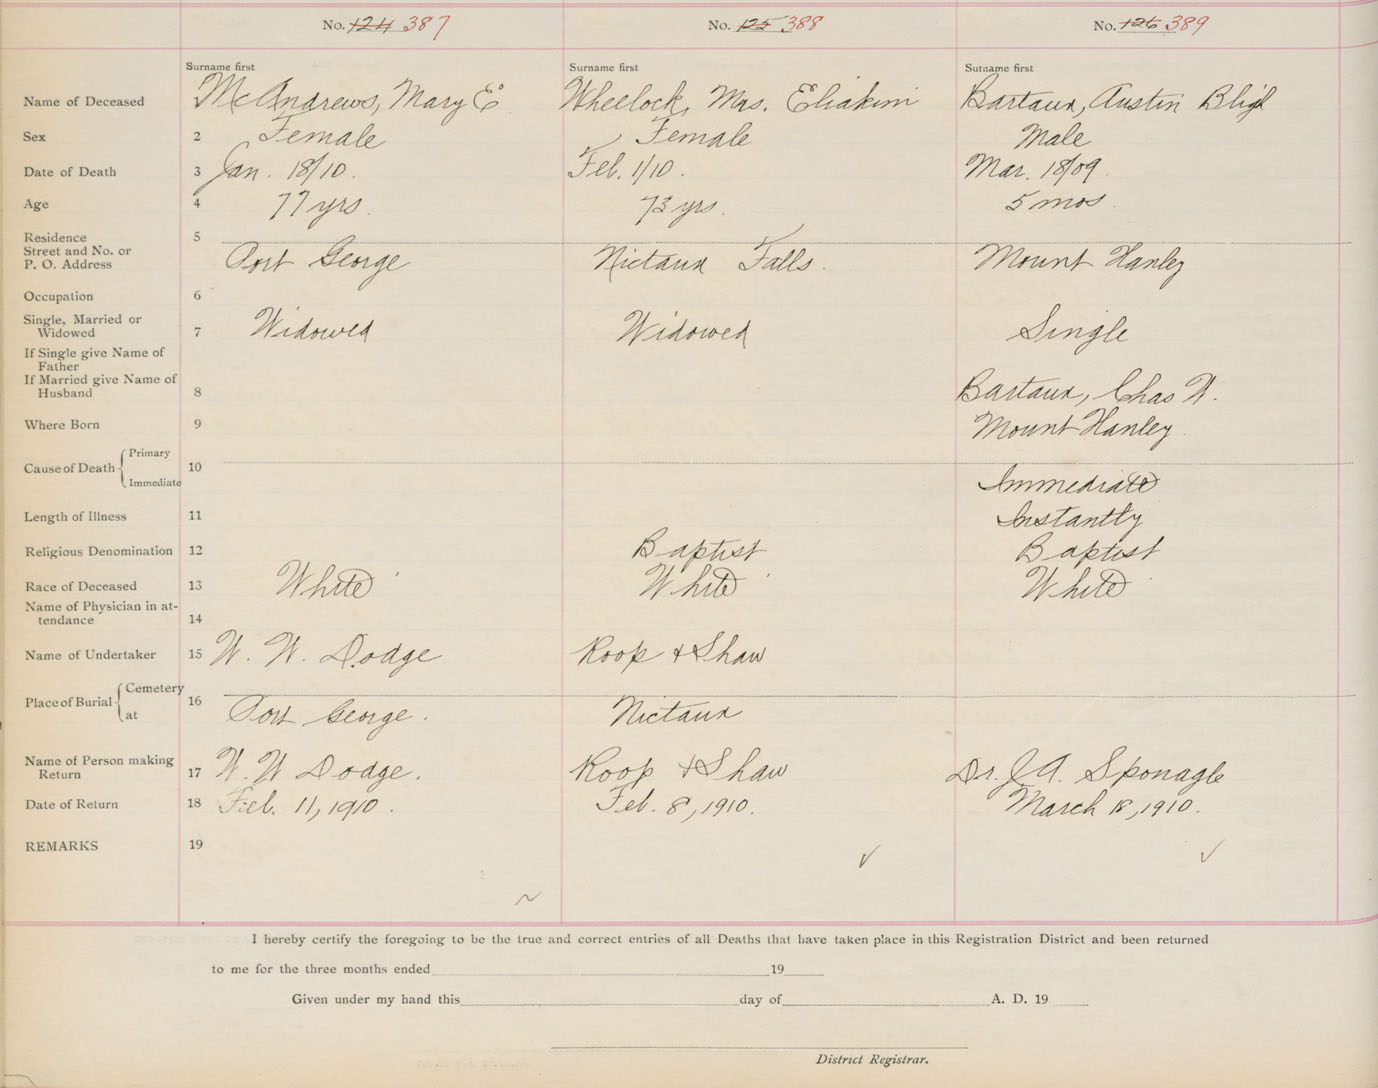 No. 124 387 No. 125 388 No. 126 389
Surname first Surname first Surname first
Name of Deceased McAndrews, Mary E Wheelock, Mrs. Eliakim Bartaux, Austin Bligh
Sex 2 Female Female Male
Date of Death 3 Jan. 18/10. Feb. 1/10. Mar. 18/09
Age 4 77 yrs. 73 yrs. 5 mos
Residence 5
Street and No. or
P. O. Address Port George Nictaux Falls. Mount Hanley
Occupation 6
Single, Married or
Widowed 7 Widowed Widowed Single
If Single give Name of
Father
If Married give Name of
Husband 8 Bartaux, Chas W.
Where Born 9 Mount Hanley
Primary
Cause of Death 10
Immediate Immediate
Length of Illness 11 Instantly
Religious Denomination 12 Baptist Baptist
Race of Deceased 13 White White White
Name of Physician in at-
tendance 14
Name of Undertaker 15 W. W. Dodge Roop & Shaw
Cemetery
Place of Burial 16
at Port George. Nictaux
Name of Person making
Return 17 W. W Dodge. Roop & Shaw Dr. J A. Sponagle
Date of Return 18 Feb. 11, 1910. Feb. 8, 1910. March 18, 1910.
REMARKS 19
I hereby certify the foregoing to be the true and correct entries of all Deaths that have taken place in this Registration District and been returned
to me for the three months ended 19
Given under my hand this day of A. D. 19
District Registrar.